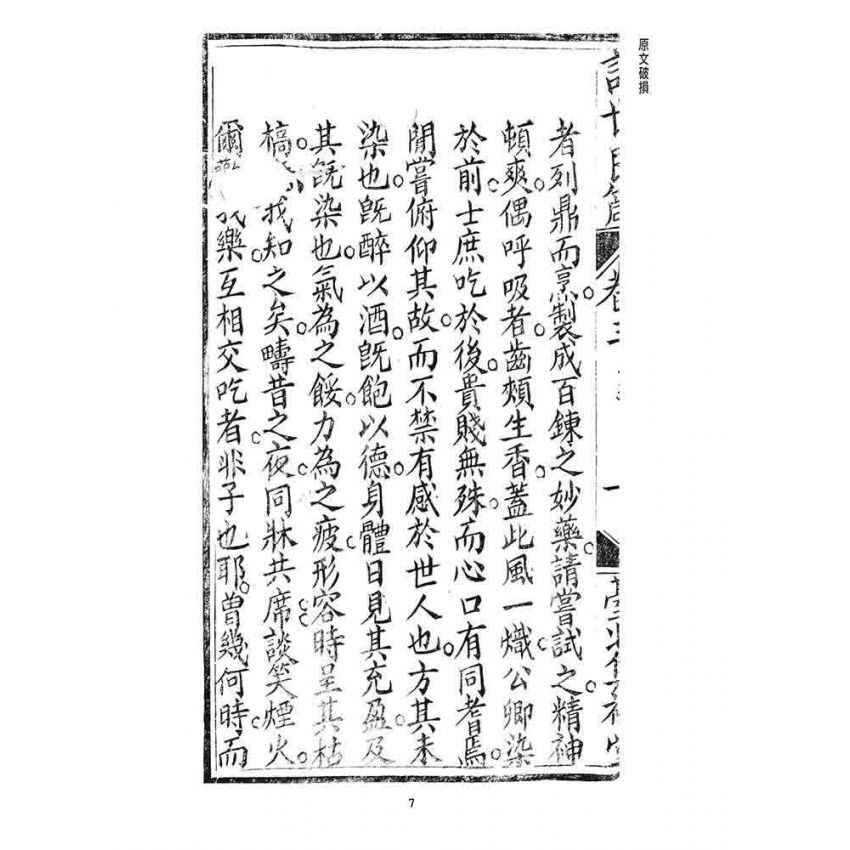 原文破損
者列鼎而烹。製成百鍊之妙藥。請嘗試之。精神
頓爽。偶呼吸者。齒頰生香。蓋此風一熾。公卿染
於前。士庶吃於後。貴賤無殊。而心口有同耆焉。
閒嘗俯仰其故。而不禁有感於世人也。方其未
染也。既醉以酒。既飽以德。身體日見其充盈。及
其既染也。氣為之餒。力為之疲。形容時呈其枯
槁。我知之矣。疇昔之夜。同牀共席。談笑煙火。
爾 我樂。互相交吃者。非子也耶。曾幾何時。而
7